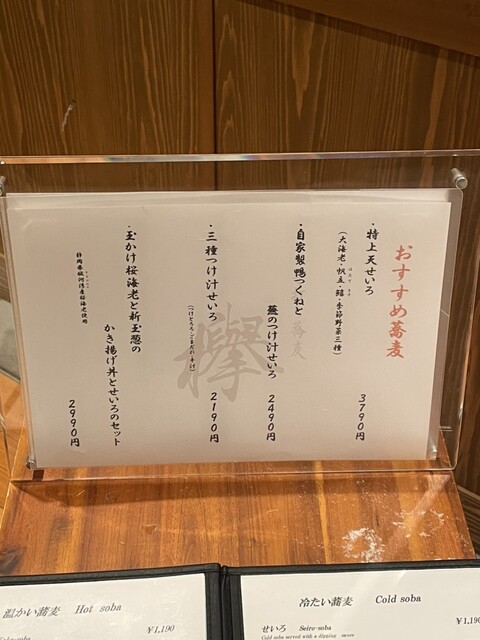 おすすめ蕎麦
・特上天せいろ
（大海老・帆立・鱚・季節野菜三種）
3790円
・自家製鴨つくねと
葱のつけ汁せいろ
2490円
・三種つけ汁せいろ
（つけとろろ・ごまだれ・辛汁）
2190円
・玉かけ桜海老と新玉葱の
かき揚げ丼とせいろのセット
静岡県駿河湾産桜海老使用
2990円
欅
蕎麦
温かい蕎麦 Hot soba
¥1,190
冷たい蕎麦 Cold soba
せいろ Seiro-soba
¥1,190
Cold soba served with a dipping sauce